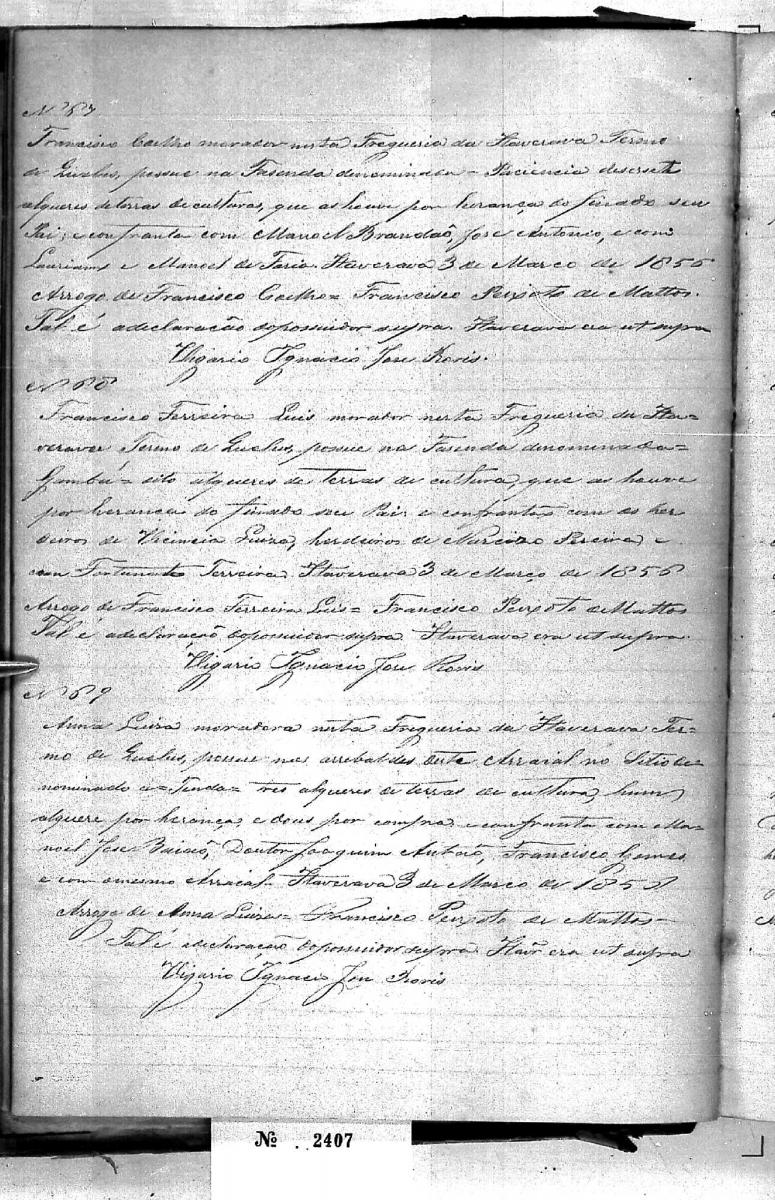 Nº 67
Francisco Coelho morador nesta Freguezia da Itaverava Termo
de Quelus, possue na Fasenda denominada = Paciencia deserseti
alqueres deterras deculturas, que as houve por herança do finado seu
Pai; e confranta com Manoel Brandaõ, Jose Antonio, e com
e Manoel de Faria. Itaverava 3 de Março de 1856
Arrogo de Francisco Coelho = Francisco Peixoto de Mattos.
Tal é adeclaração dopossuidor supra. Itaverava era ut supra
Vigario Ignacio Jose
Nº 68
Francisco Ferreira Luis morador nesta Freguezia da Ita=
verava Termo de Quelus, possue na Fasenda denominada=
= oito alqueres de terras de cultura, que as houve
por herança do finado seu Pai e confrantaõ com os her
deiros de Vicencia Luiza, herdeiros de Narcizo Pereira e
com Fortunato Ferreira. Itaverava 3 de Março de 1856
Arrogo de Francisco Ferreira Luis = Francisco Peixoto de Mattos
Tal é adeclaração dopossuidor supra Itaverava era ut supra.
Vigario Ignacio Jose
Nº 69
Anna Luiza moradora nesta Freguezia da Itaverava Ter=
mo de Quelus, possue nos arrebaldes deste Arraial no Sitio de=
nominado a= Tenda = tres alqueres deterras de cultura, hum
alquere por herança, e dous por compra e confranta com Ma=
noel Jose Baiaõ, Doutor Joaquim Antaõ, Francisco Gomes
e com omesmo Arraial. Itaverava 3 de Março de 1856
Arrogo de Anna Luiza = Francisco Peixoto de Mattos =
Tal é adeclaração dopossuidor supra Itavª era ut supra
Vigario Ignacio Jose
Nº 2407